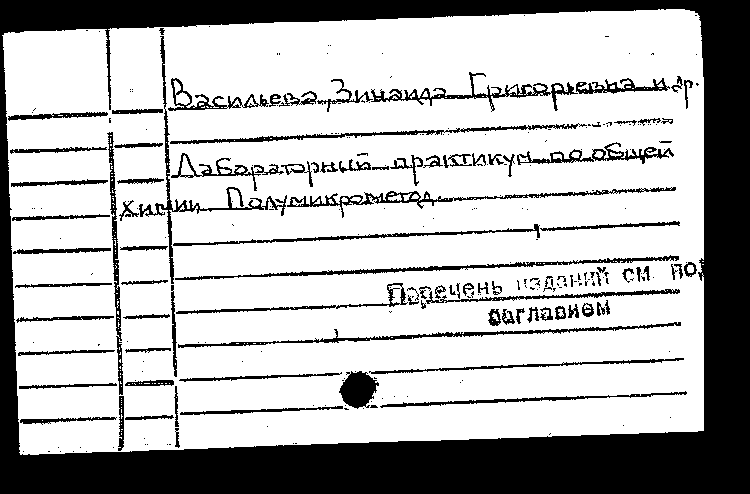 Васильева, Зинаида Григорьевна и др.
Лабораторный практикум по общей
химии. Полумикрометод.
Перечень изданий см. под
заглавием